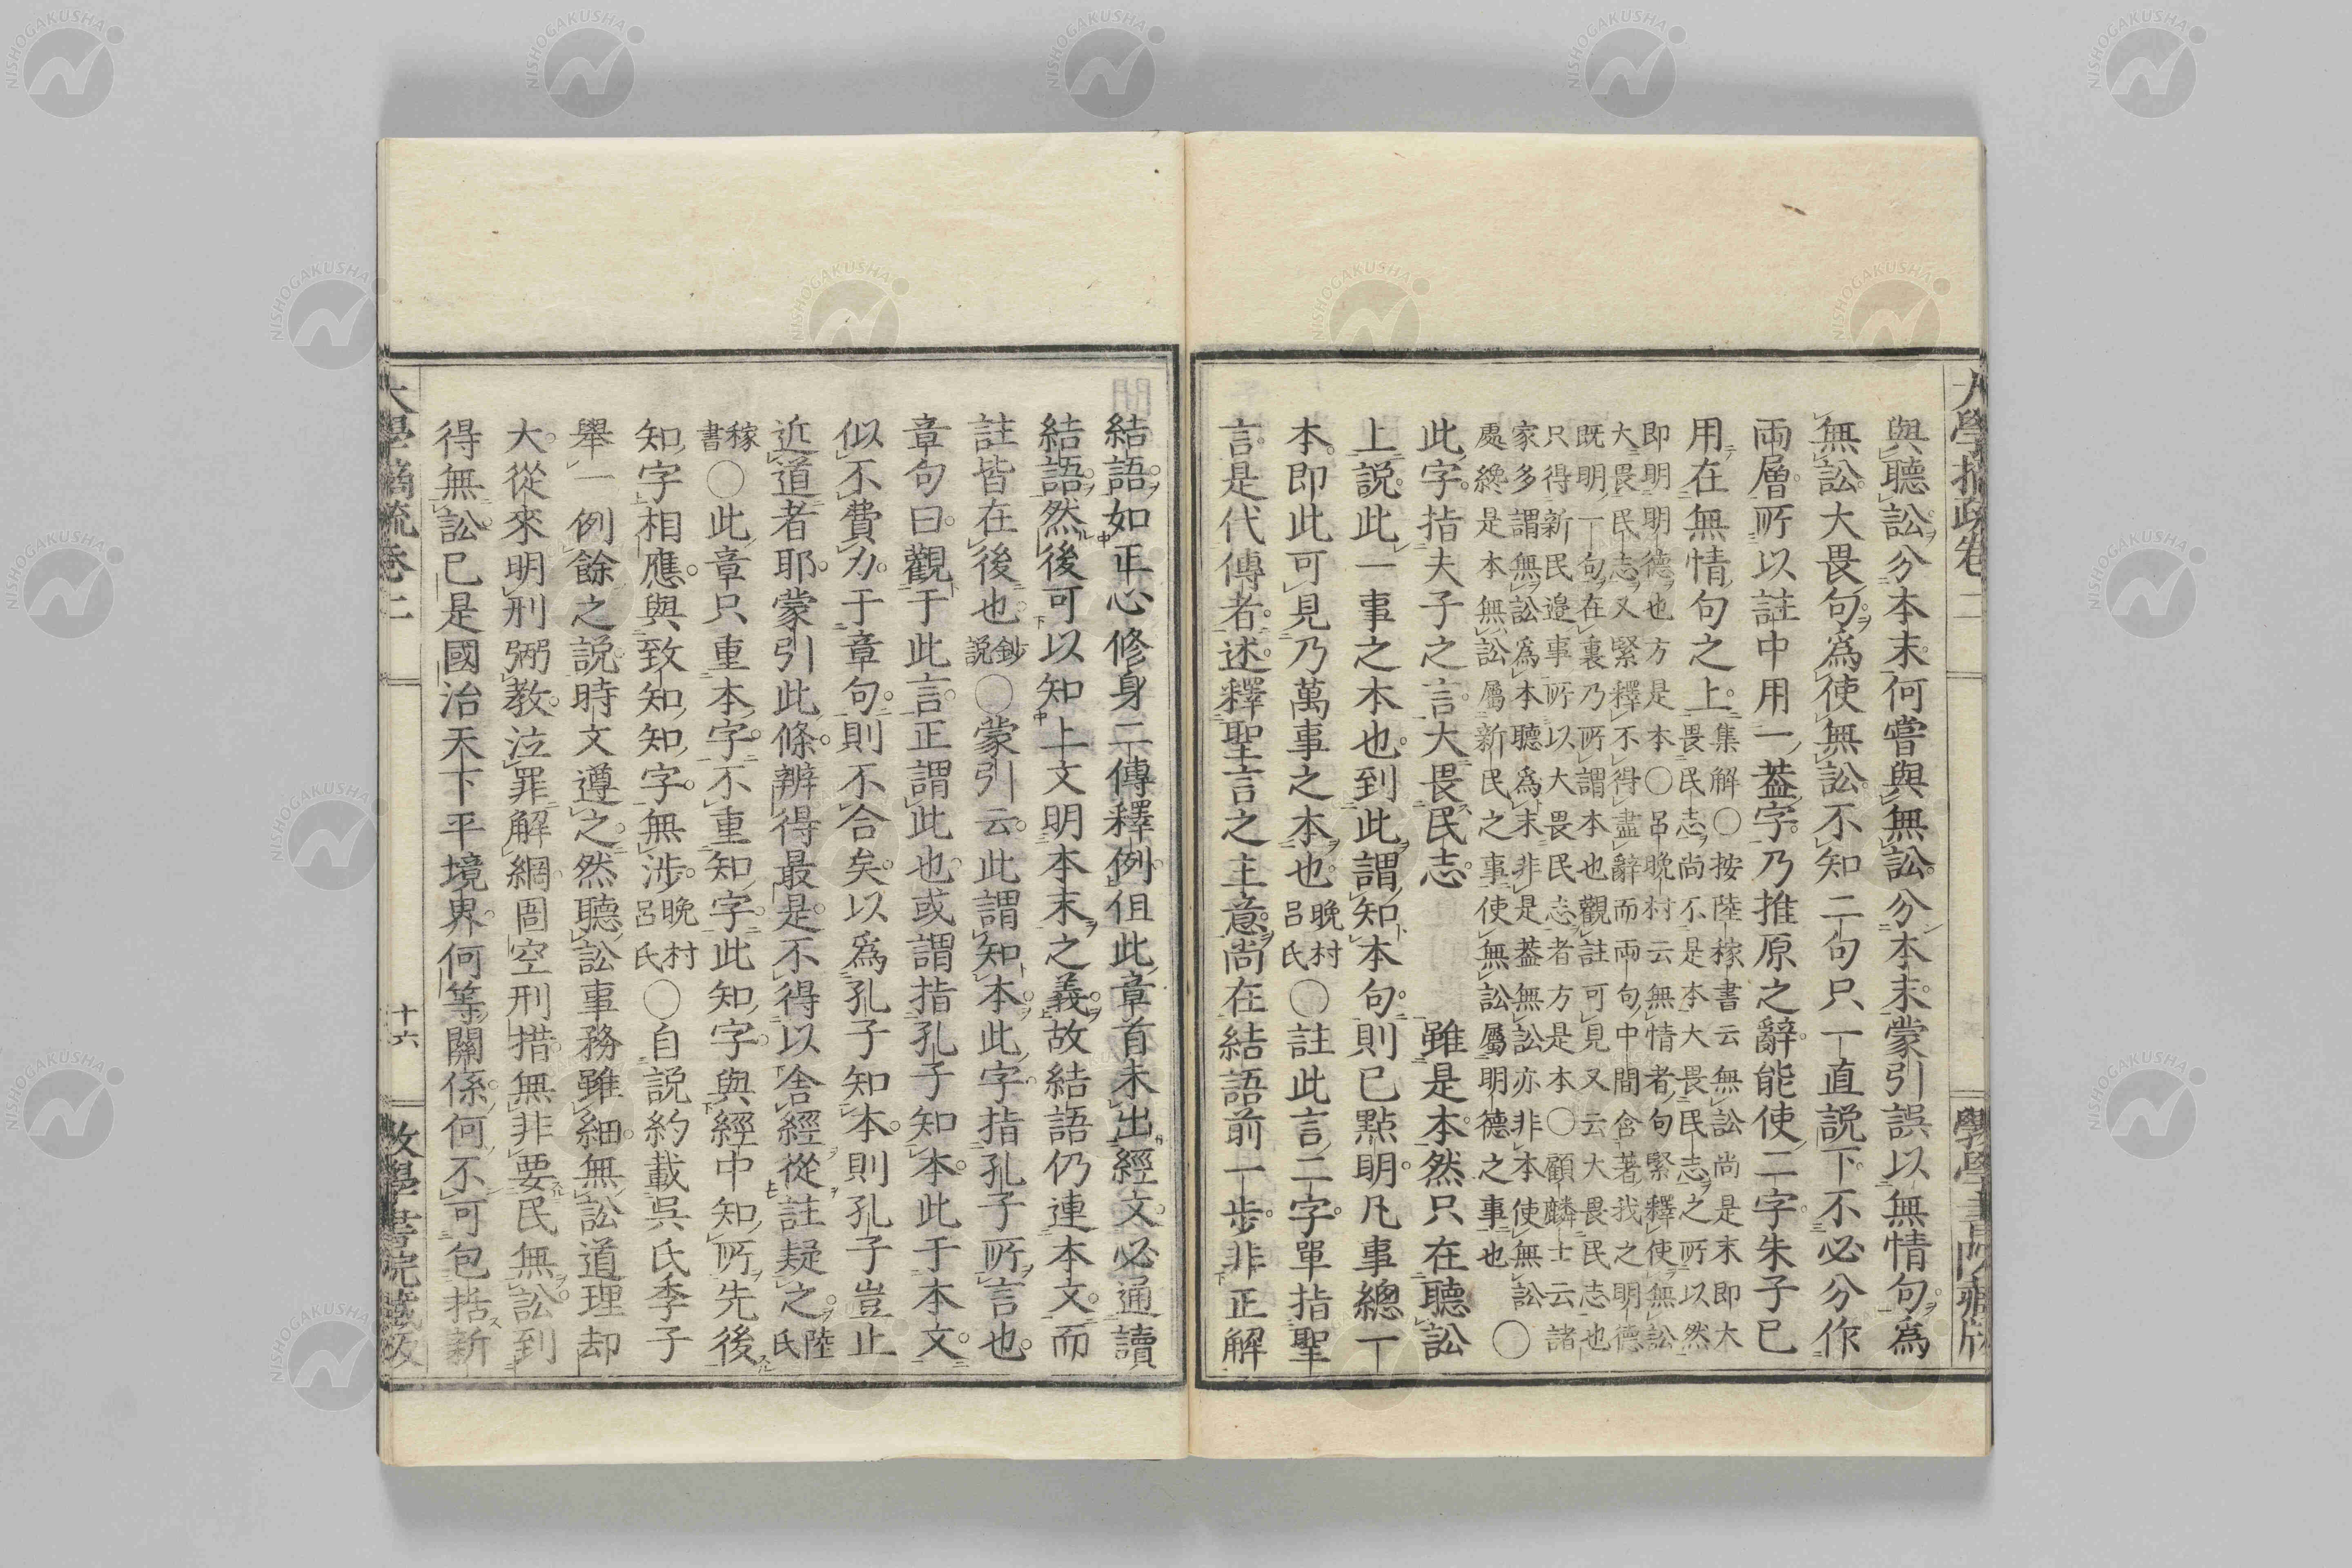 與聽訟分本末何嘗與無訟分本末蒙引誤以無情句爲
無訟大畏句爲使無訟不知二句只一直説下不必分作
兩層所以註中用一葢字乃推原之辭能使二字朱子已
用在無情句之上集解○按陸稼書云無訟尚是末即大
畏民志尚不是本大畏民志之所以然
即明明德也方是本○呂晩村云無情者句緊釋使無訟
大畏民志又緊釋不得盡辭而兩句中間含著我之明德
既明一句在裏乃所謂本也觀註可見又云大畏民志也
只得新民邉事所以大畏民志者方是本○顧麟士云諸
家多謂無訟爲本聽爲末非是葢無訟亦非本使無訟
處纔是本無訟屬新民之事使無訟屬明德之事也○
此字指夫子之言大畏民志　雖是本然只在聽訟
上説此一事之本也到此謂知本句則已點明凡事總一
本即此可見乃萬事之本也晩村呂氏○註此言二字單指聖
言是代傳者述釋聖言之主意尚在結語前一步非正解
結語如正心修身二傳釋例但此章首未出經文必通讀
結語然後可以知上文明本末之義故結語仍連本文而
註皆在後也鈔説○蒙引云此謂知本此字指孔子所言也
章句曰觀于此言正謂此也或謂指孔子知本此于本文
似不費力于章句則不合矣以爲孔子知本則孔子豈止
近道者耶蒙引此條辨得最是不得以舍經從註疑之陸氏
稼書○此章只重本字不重知字此知字與經中知所先後
知字相應與致知知字無涉晩村呂氏○自説約載吳氏季子
舉一例餘之説時文遵之然聽訟事務雖細無訟道理却
大從來明刑弼教泣罪解網囹空刑措無非要民無訟到
得無訟已是國治天下平境界何等關係何不可包括新
十六